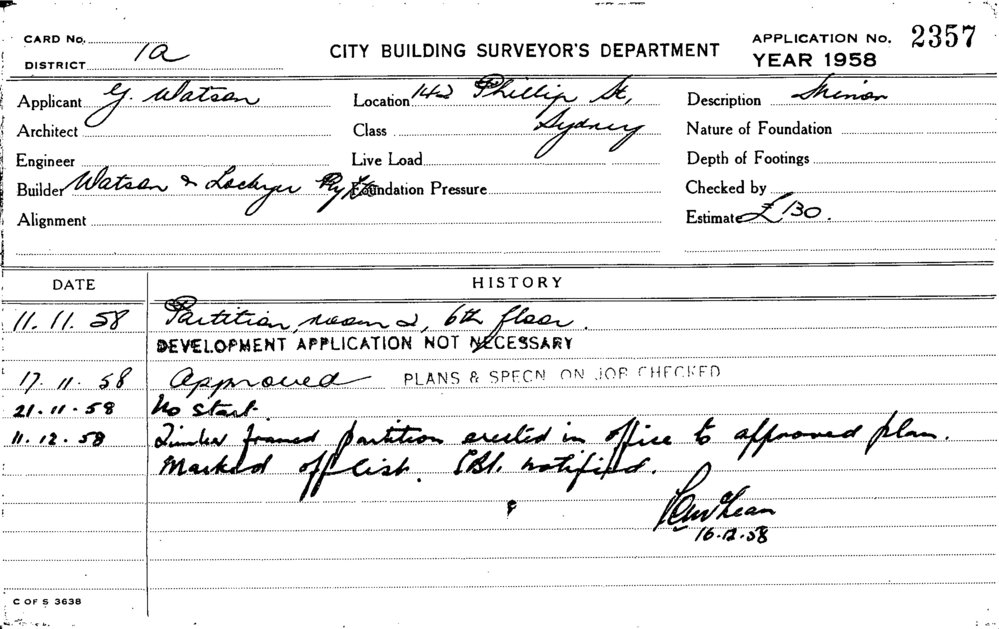 CARD No.
DISTRICT 1a
CITY BUILDING SURVEYOR'S DEPARTMENT
APPLICATION No. 2357
YEAR 1958
Applicant G. Watson
Location 142 Phillip St,
Description Minor
Architect
Class Sydney
Nature of Foundation
Engineer
Live Load
Depth of Footings
Builder Watson & Lockyer Pty Ltd
Foundation Pressure
Checked by
Alignment
Estimate £130.
DATE HISTORY
11.11.58 Partition, room 2, 6th floor.
DEVELOPMENT APPLICATION NOT NECESSARY
17.11.58 Approved PLANS & SPECN ON JOB CHECKED
21.11.58 No start.
11.12.58 Timber framed partition erected in office to approved plan.
Marked off list. notified.
16.12.58
C OF S 3638